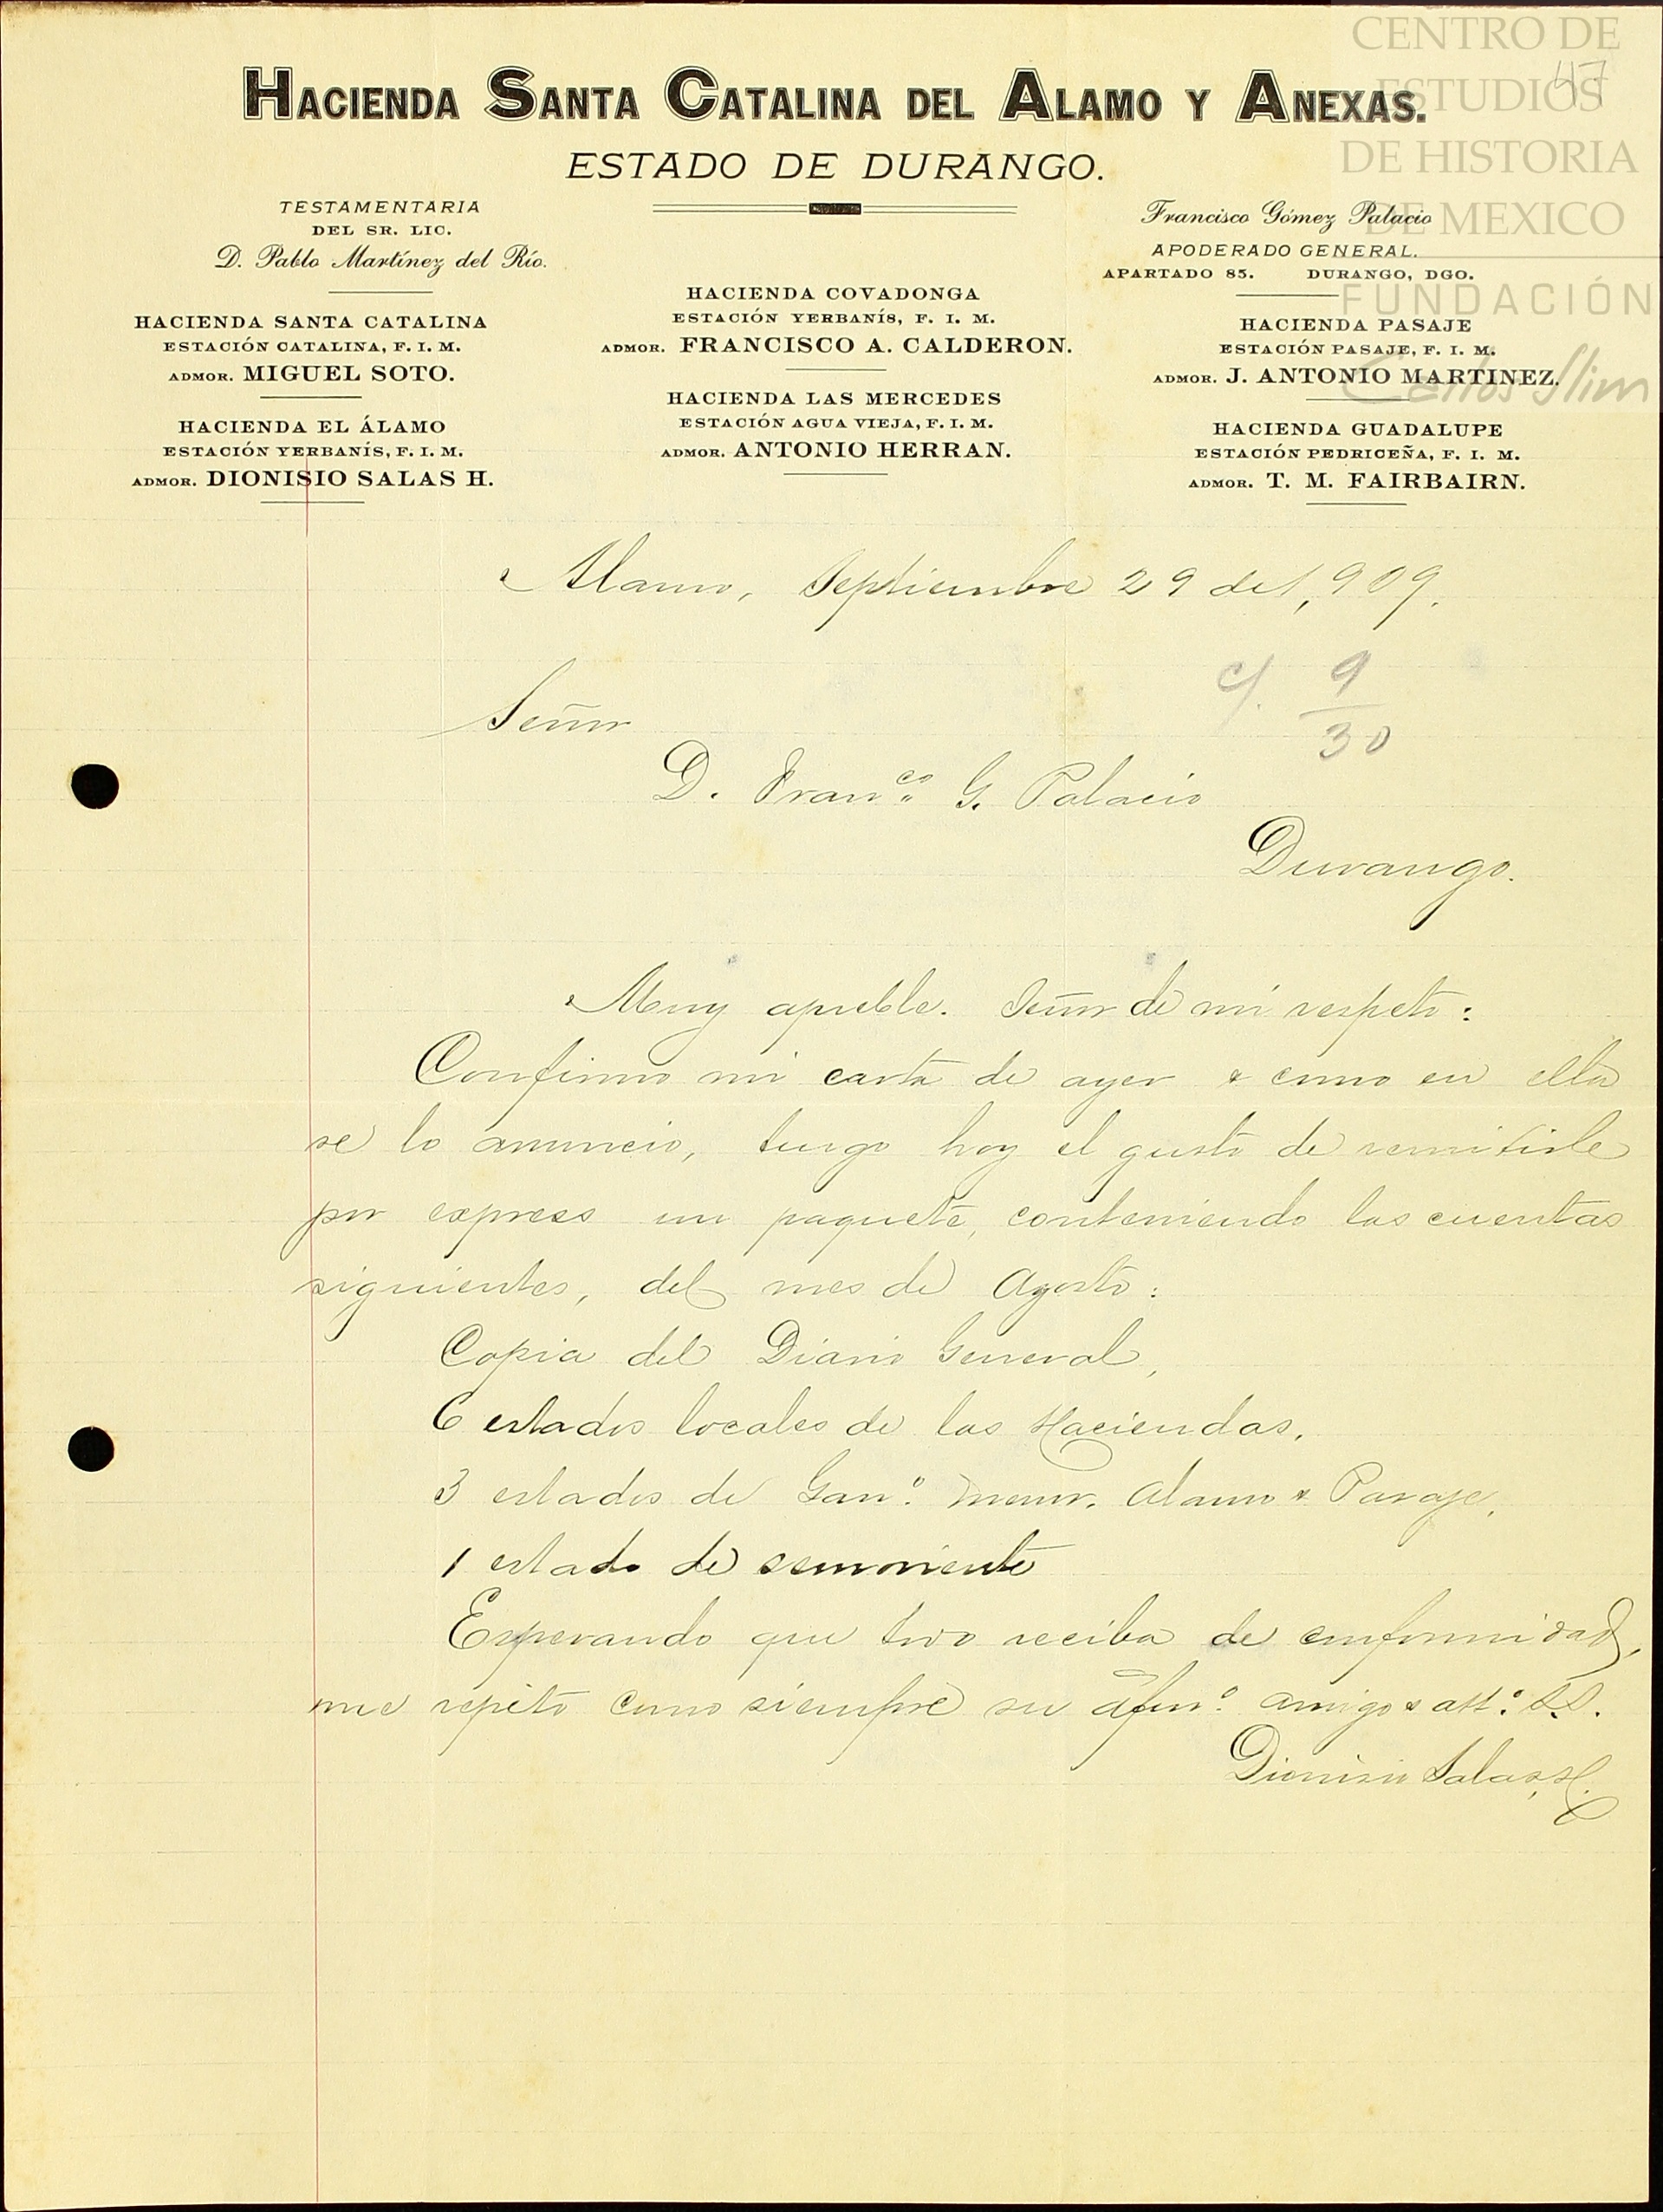 CENTRO DE
ESTUDIOS
DE HISTORIA
DE MEXICO
FUNDACIÓN
Carlos Slim
47
HACIENDA SANTA CATALINA DEL ALAMO Y ANEXAS.
ESTADO DE DURANGO.
TESTAMENTARIA
DEL SR. LIC.
D. Pablo Martínez del Río.
HACIENDA SANTA CATALINA
ESTACIÓN CATALINA, F. I. M.
ADMOR. MIGUEL SOTO.
HACIENDA EL ÁLAMO
ESTACIÓN YERBANÍS, F. I. M.
ADMOR. DIONISIO SALAS H.
HACIENDA COVADONGA
ESTACIÓN YERBANÍS, F. I. M.
ADMOR. FRANCISCO A. CALDERON.
HACIENDA LAS MERCEDES
ESTACIÓN AGUA VIEJA, F. I. M.
ADMOR. ANTONIO HERRAN.
Francisco Gómez Palacio
APODERADO GENERAL.
APARTADO 85. DURANGO, DGO.
HACIENDA PASAJE
ESTACIÓN PASAJE, F. I. M.
ADMOR. J. ANTONIO MARTINEZ.
HACIENDA GUADALUPE
ESTACIÓN PEDRICEÑA, F. I. M.
ADMOR. T. M. FAIRBAIRN.
Alamo, Septiembre 29 de 1,909.
c/. 9
30
Señor
D. Franco. G. Palacio
Durango.
Muy apreble. Señor de mi respeto:
Confirmo mi carta de ayer & como en ella
se lo anuncio, tengo hoy el gusto de remitirle
por express un paquete, conteniendo las cuentas
siguientes, del mes de Agosto:
Copia del Diario General,
6 estados locales de las Haciendas,
3 estados de Gano. menor. Alamo & Pasaje,
1 estado de semoviente
Esperando que todo reciba de conformidad,
me repito como siempre su afmo. amigo & atto. S.S.
Dionisio Salas H.